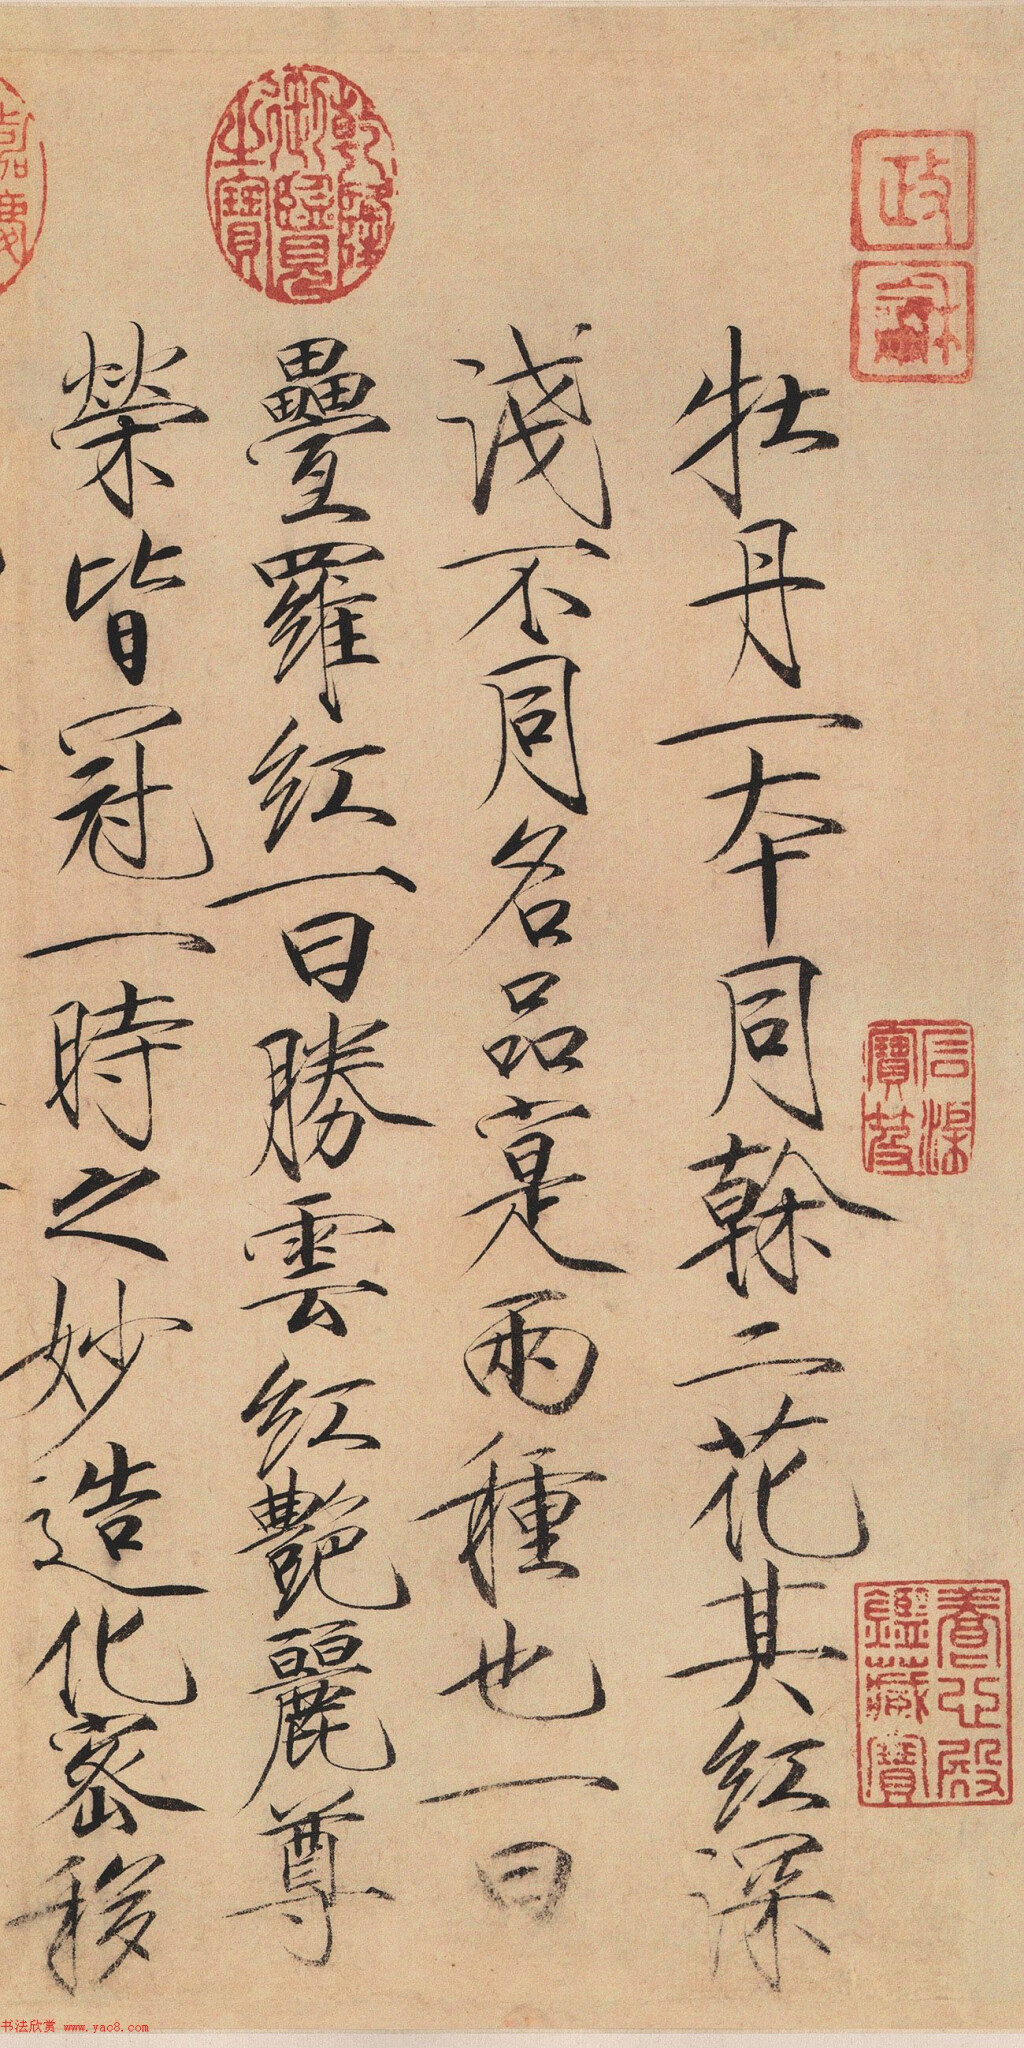 牡丹一本同榦二花其紅深
淺不同名品寔兩種也一曰
疊羅紅一曰勝雲紅艷麗尊
榮皆冠一時之妙造化密移
政
龢
乾隆御覽之寶
嘉慶
養心殿鑑藏寶
书法欣赏 www.yac8.com